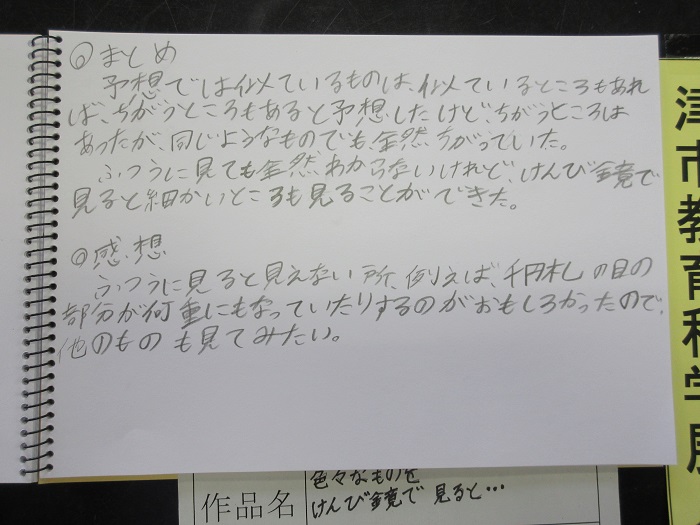 ◎まとめ
予想では似ているものは、似ているところもあれ
ば、ちがうところもあると予想したけど、ちがうところは
あったが、同じようなものでも、全然ちがっていた。
ふつうに見ても全然、わからないけれど、けんび鏡で
見ると細かいところも見ることができた。
◎感想
ふつうに見ると見えない所、例えば、千円札の目の
部分が何重にもなっていたりするのがおもしろかったので、
他のものも見てみたい。
作品名
色々なものを
けんび鏡で見ると…
津市教育科学展